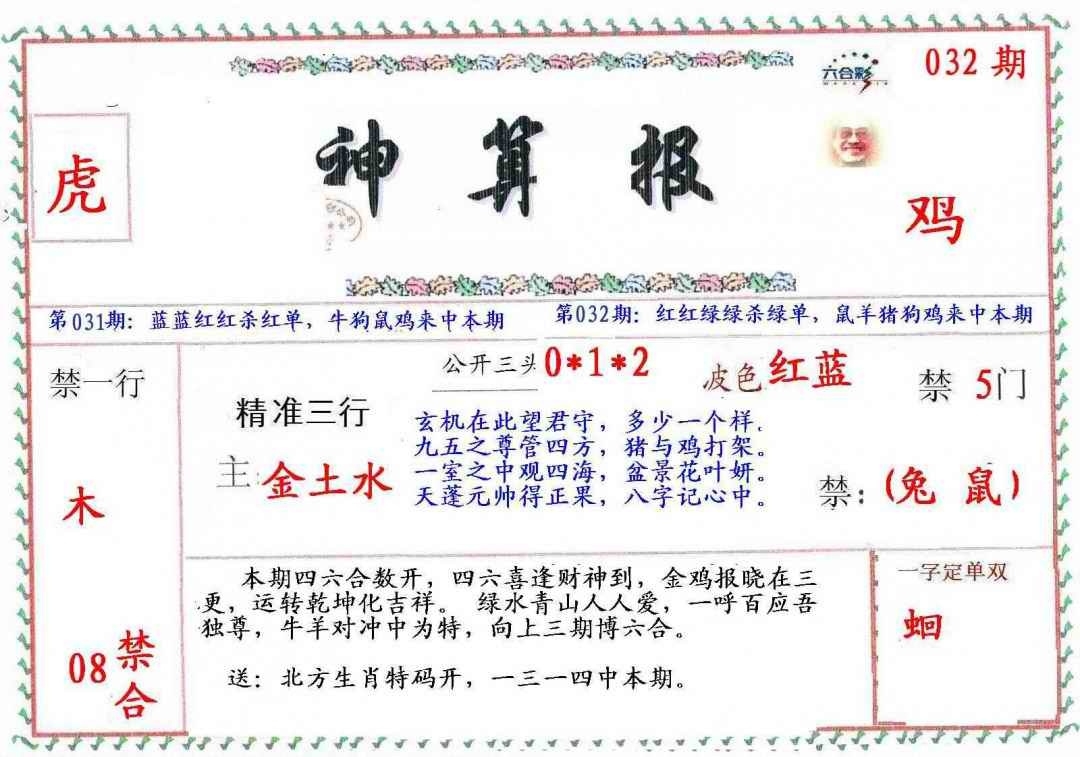 六合彩
032 期
虎
神算报
鸡
第031期：蓝蓝红红杀红单，牛狗鼠鸡来中本期
第032期：红红绿绿杀绿单，鼠羊猪狗鸡来中本期
禁一行
木
08 禁合
精准三行
主:金土水
公开三头0*1*2
波色红蓝
禁 5门
玄机在此望君守，多少一个样.
九五之尊管四方，猪与鸡打架。
一室之中观四海，盆景花叶妍。
天蓬元帅得正果，八字记心中。
禁：(兔 鼠)
本期四六合数开，四六喜逢财神到，金鸡报晓在三
更，运转乾坤化吉祥。 绿水青山人人爱，一呼百应吾
独尊，牛羊对冲中为特，向上三期博六合。
送：北方生肖特码开，一三一四中本期。
一字定单双
蛔